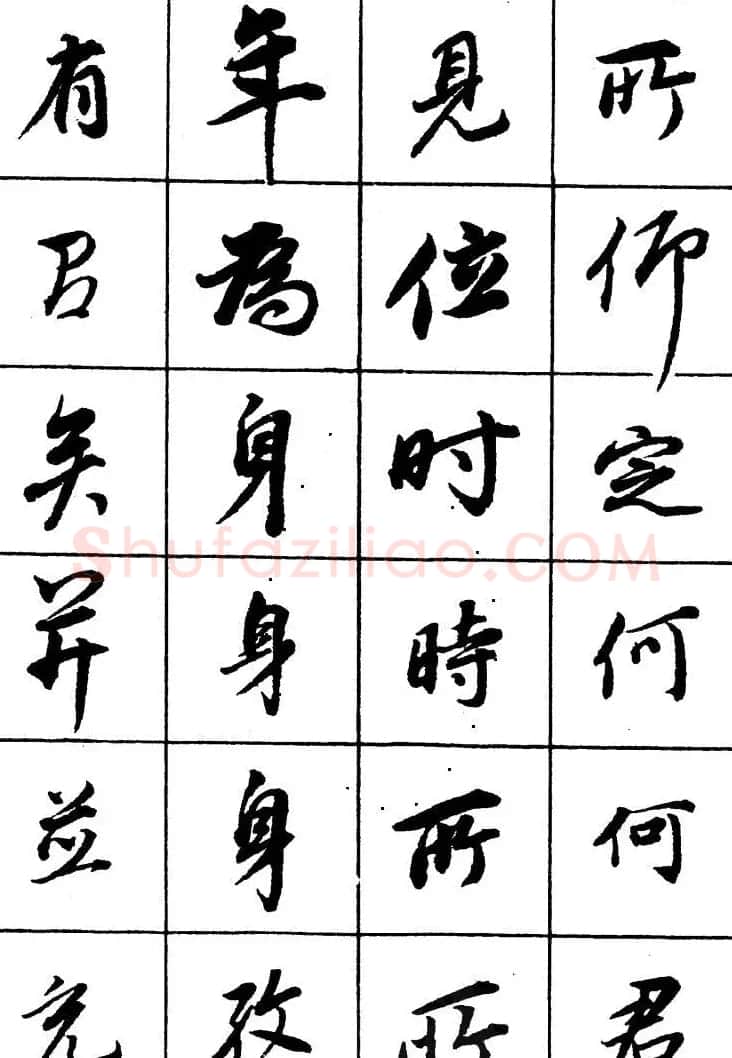 有 年 見 所
召 為 位 仰
矣 身 时 定
Shufaziliao.COM
并 身 時 何
並 身 所 何
充 孜 所 君